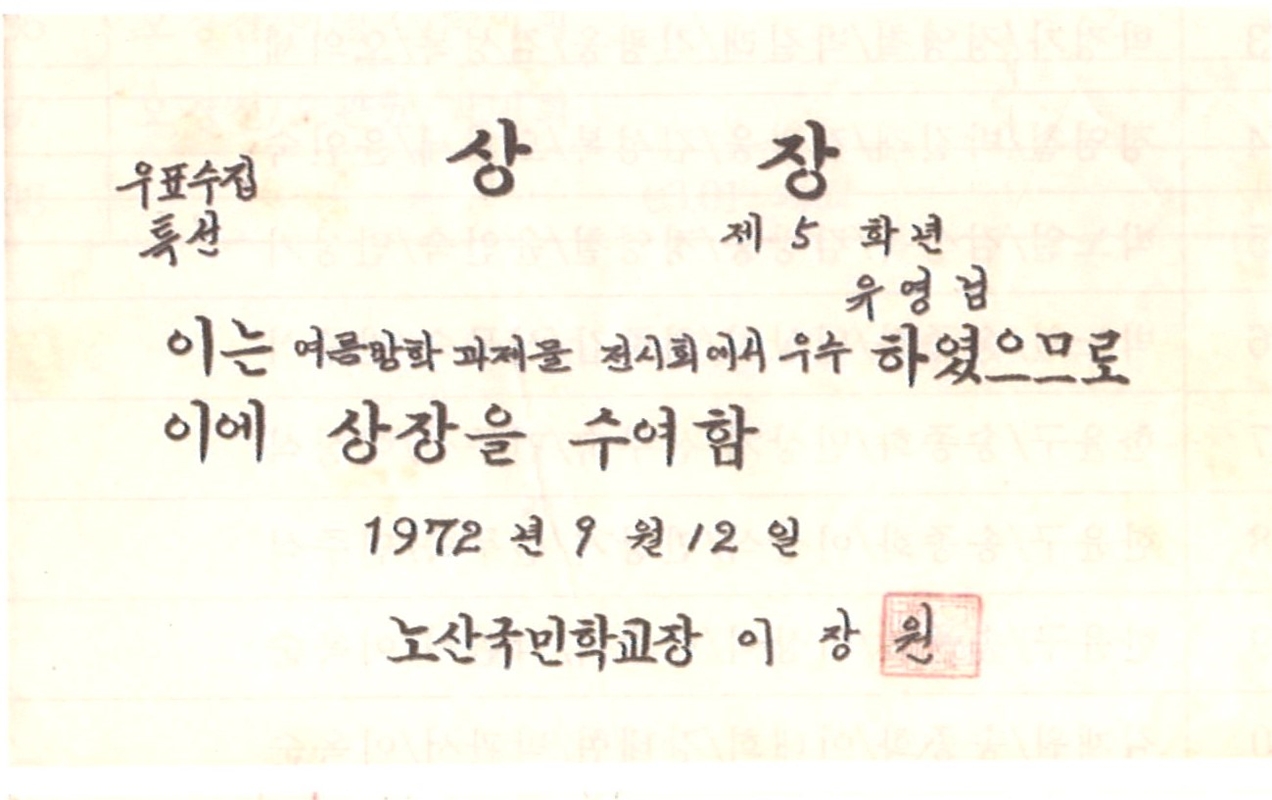 상 장
우표수집
특선
제 5 학년
유영검
이는 여름방학 과제물 전시회에서 우수 하였으므로
이에 상장을 수여함
1972 년 9 월 12 일
노산국민학교장 이 장 원